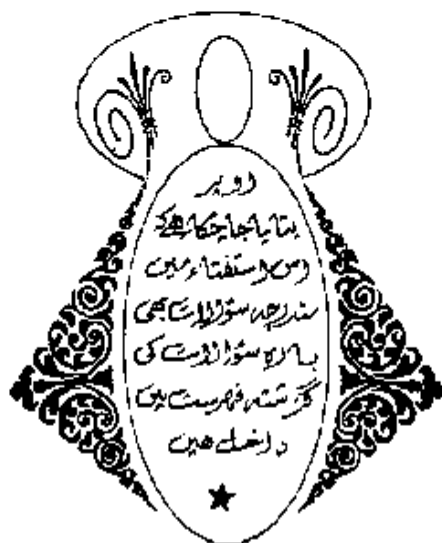 اوپر
بتایا جا چکا ہے کہ
اس استفتاء میں
مندرجہ سؤالات بھی
بارہ سؤالات کی
گزشتہ فہرست میں
داخل ہیں